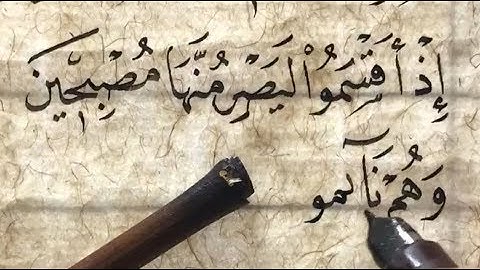 إِذْ أَقْسَمُواْ لَيَصْرِمُنَّهَا مُصْبِحِينَ
وَهُمْ نَآىمو